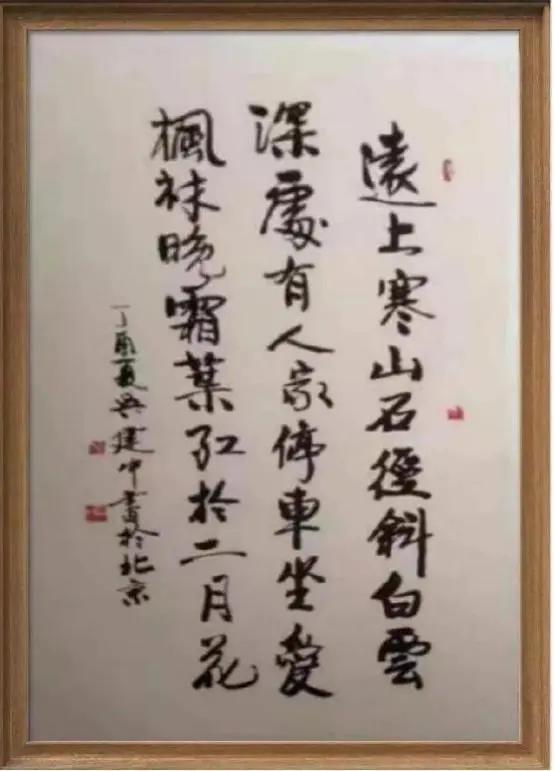 遠上寒山石徑斜白雲
深處有人家停車坐愛
楓林晚霜葉紅於二月花
丁酉夏吳建中書於北京